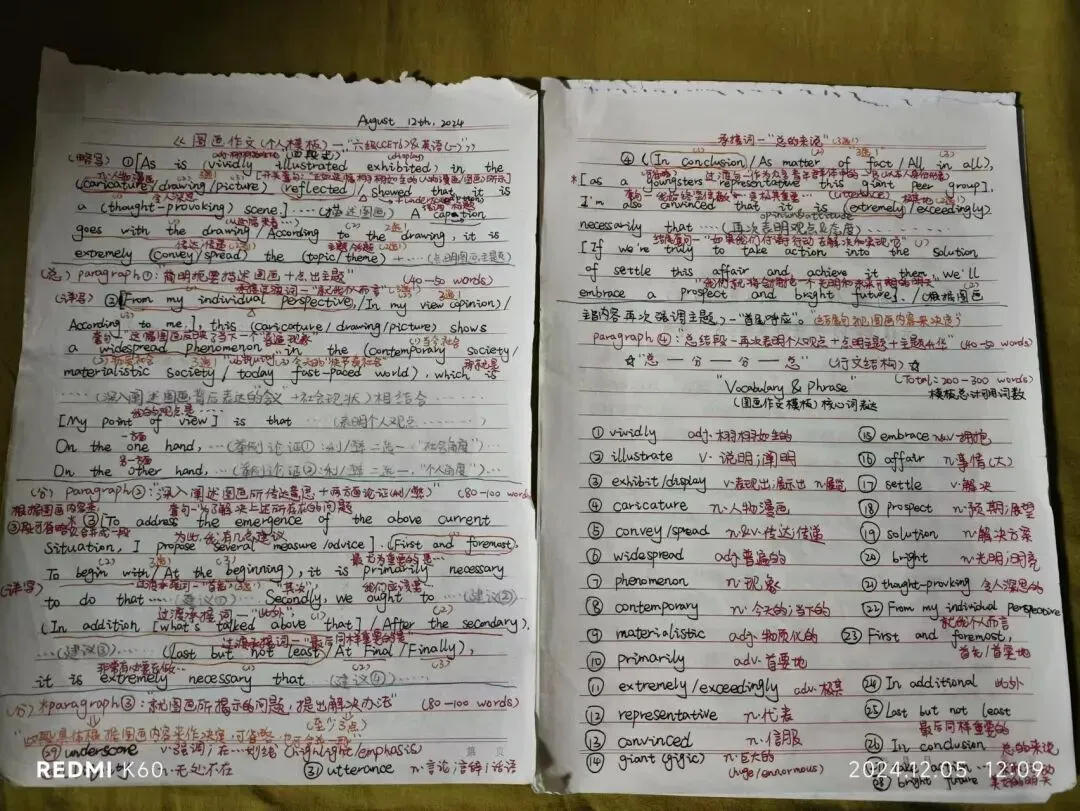 August 12th, 2024
《图画作文(个人模板)—"六级(CET6)&英语(一)"》
(略写) ①[As is (vividly illustrated exhibited) in the
(display)
(caricature/drawing/picture) (reflected) / showed that it is
n·人物漫画
令人深思
a (thought-provoking) scene]……(描述图画) A caption
goes with the drawing/According to the drawing, it is
传达/传递
主题/话题
extremely (convey/spread) the (topic/theme) +……(点明图画主题)
(总) paragraph①: 简明扼要描述图画+点出主题 (40-50 words)
承接连词—"就我个人而言"
(详写) ②[From my individual perspective,/In my view(opinion)/
According to me,], this (caricature/drawing/picture) shows
a widespread phenomenon in the (contemporary society/
materialistic society/today fast-paced world), which is
……(深入阐述图画背后表达的含义+社会现状)相结合……
我的观点是…
[My point of view] is that ……(表明个人观点……)
一方面
On the one hand, ……(举例论证①:利/弊二选一,"社会角度")……
另一方面
On the other hand, ……(举例论证②:利/弊二选一,"个人角度")……
(分) paragraph②:"深入阐述图画所传达意思+两方面论证(利/弊)" (80-100 words)
③[To address the emergence of the above current
为此,我有几点建议
situation, I propose several measure/advice]. (First and foremost,
To begin with/At the beginning), it is primarily necessary
(详写) to do that ……(建议①)…… Secondly, we ought to ……(建议②)
过渡承接词—"此外"
(In addition [what's talked above that]/After the secondary),
过渡承接词—"最后同样重要的是"
……(建议③)…… (Last but not least/At Final/Finally),
it is extremely necessary that ……(建议④)……
(分) *paragraph③:"就图画所揭示的问题,提出解决办法" (80-100 words)
(至少3点)
㉙ underscore v·强调/在…划线 (highlight/emphasis)
n·无处不在 ㉛ utterance n·言论/言辞/话语
承接词—"总的来说"
④ (In conclusion/As matter of fact/All in all),
*[as a youngsters representative this giant peer group],
I'm also convinced that it is (extremely/exceedingly)
necessarily that ……(再次表明观点&态度)……
[If we're truly to take action into the solution
of settle this affair and achieve it them, we'll
embrace a prospect and bright future]./(根据图画
主旨内容再次强调主题)—"首尾呼应"。
paragraph④:总结段—再次表明个人观点+点明主题+主题升华 (40-50 words)
☆"总—分—分—总"(行文结构)☆
"Vocabulary & Phrase" (Total: 200-300 words)
(图画作文模板)核心词表达 模板总计可用词数
① vividly adj·栩栩如生的
② illustrate v·说明;阐明
③ exhibit/display v·表现出;展示出 n·展览
④ caricature n·人物漫画
⑤ convey/spread n&v·传达;传递
⑥ widespread adj·普遍的
⑦ phenomenon n·现象
⑧ contemporary n·今天的;当下的
⑨ materialistic adj·物质化的
⑩ primarily adv·首要地
⑪ extremely/exceedingly adv·极其
⑫ representative n·代表
⑬ convinced n·信服
⑭ giant (gigic) n·巨大的
(huge/ennormous)
⑮ embrace n&v·拥抱
⑯ affair n·事情(大)
⑰ settle v·解决
⑱ prospect n·预期;展望
⑲ solution n·解决方案
⑳ bright n·光明/明亮
㉑ thought-provking 令人深思的
㉒ From my individual perspective
就我个人而言
㉓ First and foremost,
首先/首要地
㉔ In additional 此外
㉕ Last but not least
最后同样重要的
㉖ In conclusion 总的来说
㉘ bright future 美好的明天
REDMI K60
2024.12.05 12:09